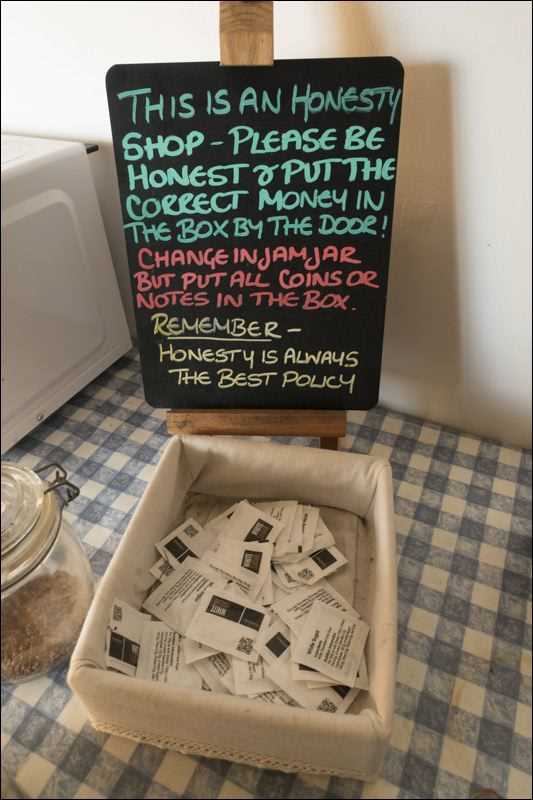 THIS IS AN HONESTY
SHOP - PLEASE BE
HONEST & PUT THE
CORRECT MONEY IN
THE BOX BY THE DOOR!
CHANGE IN JAM JAR
BUT PUT ALL COINS OR
NOTES IN THE BOX.
REMEMBER -
HONESTY IS ALWAYS
THE BEST POLICY
WHITE
White Sugar